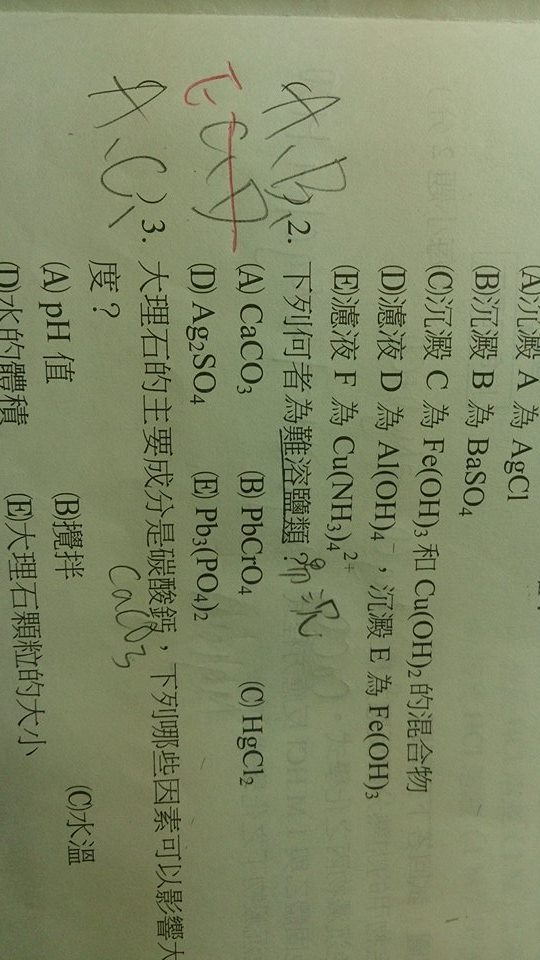 (A)沉澱 A 為 AgCl
(B)沉澱 B 為 BaSO₄
(C)沉澱 C 為 Fe(OH)₃ 和 Cu(OH)₂ 的混合物
(D)濾液 D 為 Al(OH)₄⁻，沉澱 E 為 Fe(OH)₃
(E)濾液 F 為 Cu(NH₃)₄²⁺
A、B、)2. 下列何者為難溶鹽類？沉
E C、D
(A) CaCO₃ (B) PbCrO₄ (C) HgCl₂
(D) Ag₂SO₄ (E) Pb₃(PO₄)₂
A、C、)3. 大理石的主要成分是碳酸鈣，下列哪些因素可以影響大
CaCO₃
度？
(A) pH 值 (B)攪拌 (C)水溫
(D)水的體積 (E)大理石顆粒的大小